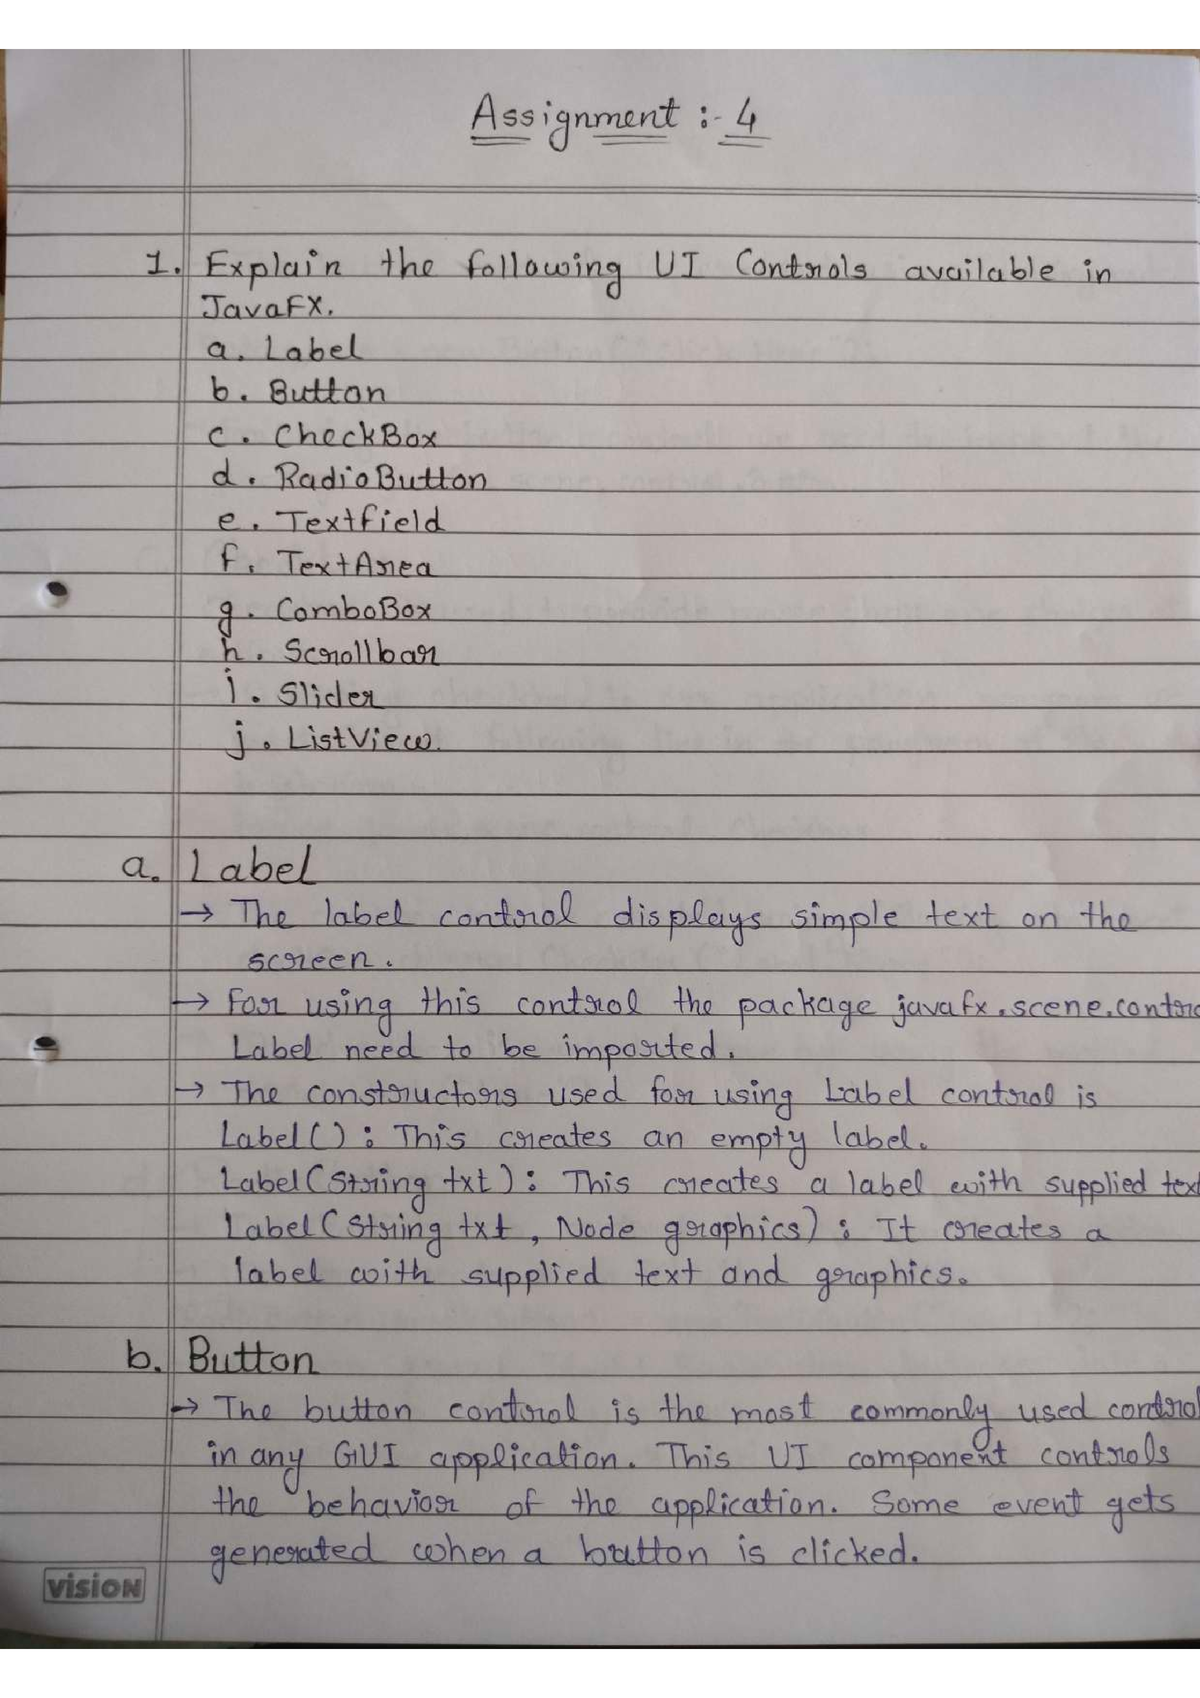 Assignment :- 4
1. Explain the following UI Controls available in
JavaFX.
a. Label
b. Button
c. CheckBox
d. RadioButton
e. Textfield
f. TextArea
g. ComboBox
h. Scrollbar
i. Slider
j. ListView.
a. Label
→ The label control displays simple text on the
screen.
→ For using this control the package javafx.scene.contro
Label need to be imported.
→ The constructors used for using Label control is
Label() : This creates an empty label.
Label(String txt) : This creates a label with supplied text
Label(String txt, Node graphics) : It creates a
label with supplied text and graphics.
b. Button
→ The button control is the most commonly used control
in any GUI application. This UI component controls
the behavior of the application. Some event gets
generated when a button is clicked.
vision